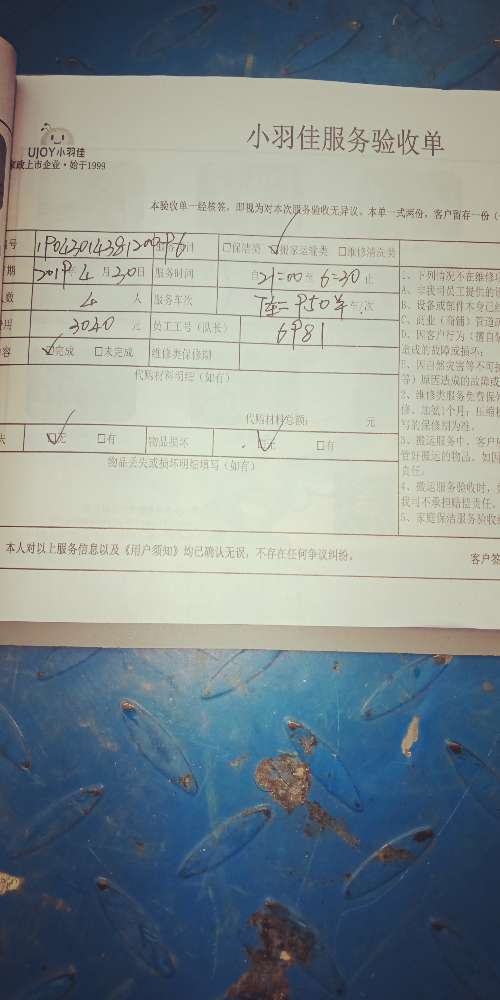 小羽佳服务验收单
UJOY小羽佳
家政上市企业·始于1999
本验收单一经核签，即视为对本次服务验收无异议。本单一式两份，客户留存一份
号 服务项目 □保洁类 ☑搬家运输类 □维修清洗类
期 2019年4月30日 服务时间 自21:00至6:30止
人数 4人 服务车次 车次
费用 3040元 员工工号(队长) 6981
内容 ☑完成 □未完成 维修类保修期
代购材料明细(如有)
代购材料总额: 元
失 ☑无 □有 物品损坏 ☑无 □有
物品丢失或损坏明细填写(如有)
1、下列情况不在维修
A、非我司员工提供的
B、设备或部件本身已
C、此业(商铺)管道
D、因客户行为(擅自
造成的故障或损坏;
E、因自然灾害等不可
等)原因造成的故障或
2、维修类服务免费保
修，加氨1个月;压缩
写的保修期为准。
3、搬运服务中，客户
管好搬运的物品，如因
责任。
4、搬运服务验收时，
我司不承担赔偿责任。
5、家庭保洁服务验收
本人对以上服务信息以及《用户须知》均已确认无误，不存在任何争议纠纷。
客户签